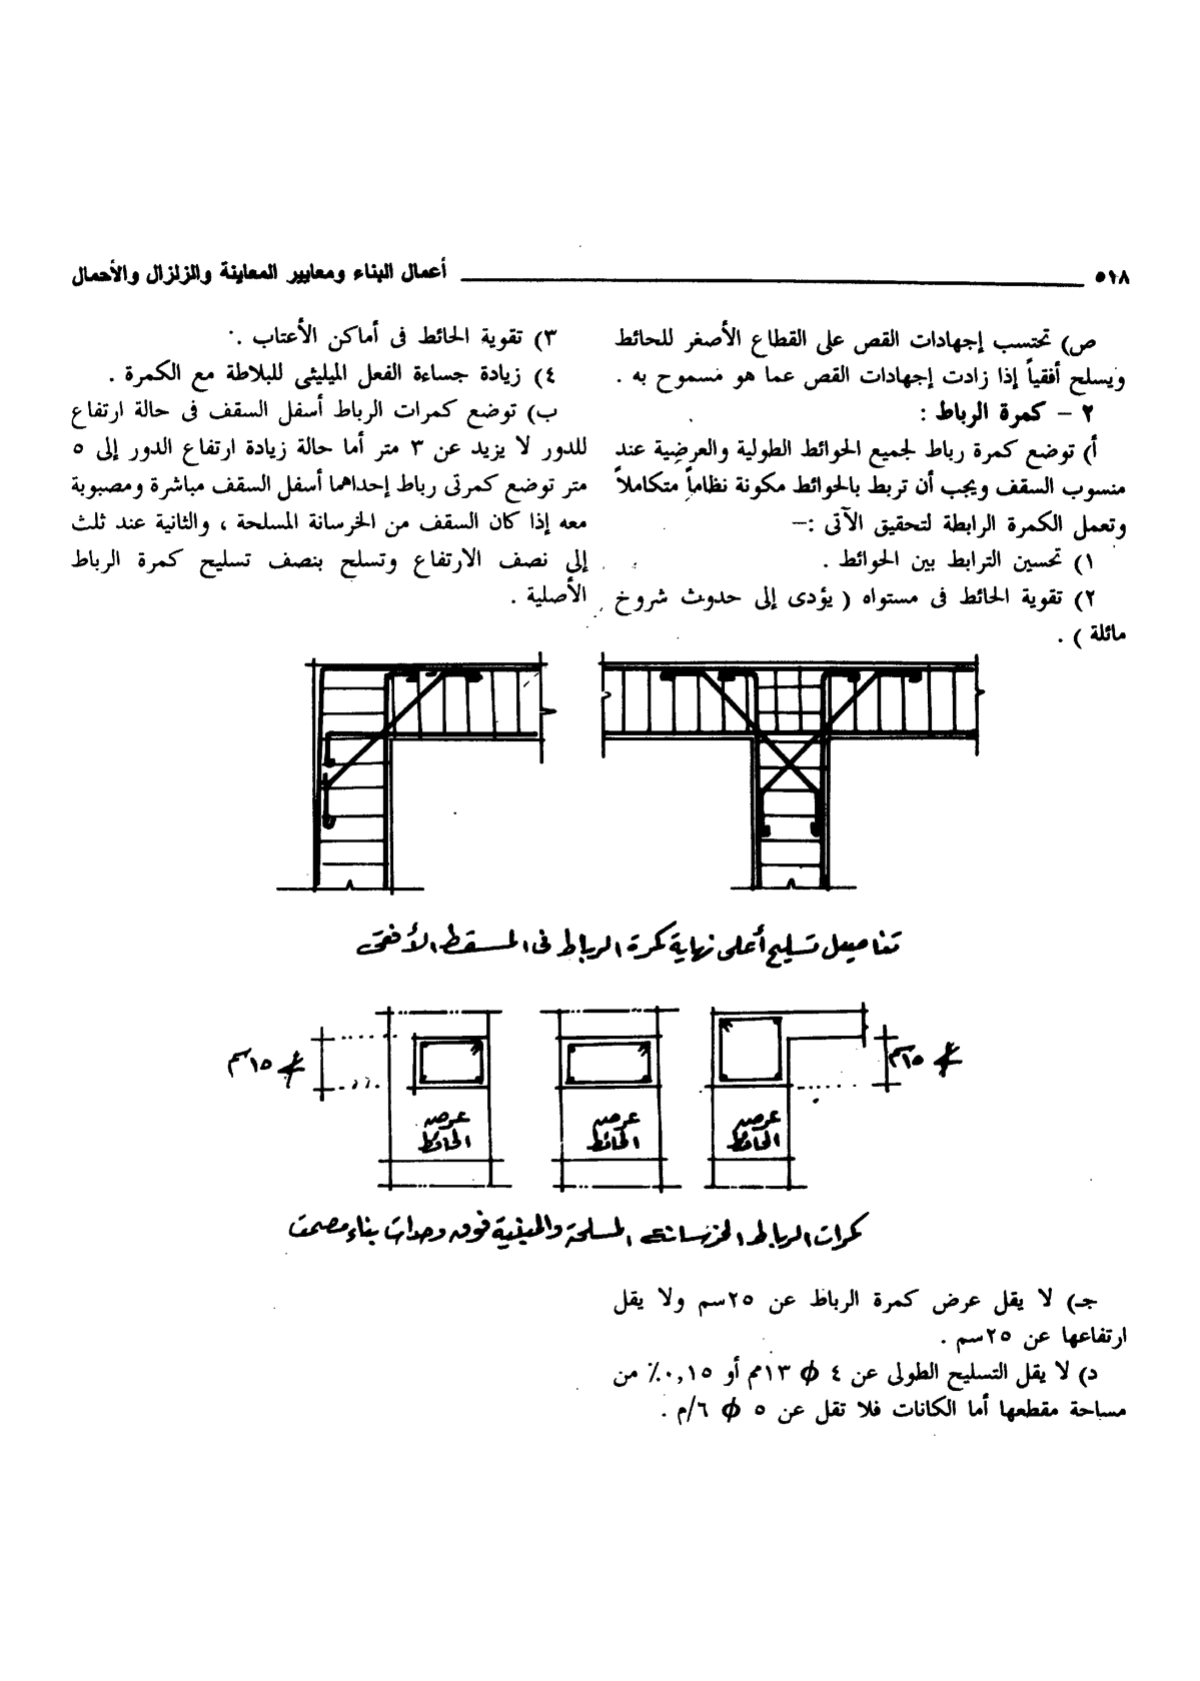 ٥١٨ أعمال البناء ومعايير المعاينة والزلزال والأحمال
ص) تحتسب إجهادات القص على القطاع الأصغر للحائط
ويسلح أفقياً إذا زادت إجهادات القص عما هو مسموح به .
٢ – كمرة الرباط :
أ) توضع كمرة رباط لجميع الحوائط الطولية والعرضية عند
منسوب السقف ويجب أن تربط بالحوائط مكونة نظاماً متكاملاً
وتعمل الكمرة الرابطة لتحقيق الآتى :–
١) تحسين الترابط بين الحوائط .
٢) تقوية الحائط فى مستواه ( يؤدى إلى حدوث شروخ
مائلة ) .
٣) تقوية الحائط فى أماكن الأعتاب .
٤) زيادة جساءة الفعل الميليثى للبلاطة مع الكمرة .
ب) توضع كمرات الرباط أسفل السقف فى حالة ارتفاع
للدور لا يزيد عن ٣ متر أما حالة زيادة ارتفاع الدور إلى ٥
متر توضع كمرتى رباط إحداهما أسفل السقف مباشرة ومصبوبة
معه إذا كان السقف من الخرسانة المسلحة ، والثانية عند ثلث
إلى نصف الارتفاع وتسلح بنصف تسليح كمرة الرباط
الأصلية .
تفاصيل تسليح أعلى نهاية كمرة الرباط فى المسقط الأفقى
١٥سم
١٥سم
عرض
الحائط
عرض
الحائط
عرض
الحائط
كمرات الرباط الخرسانية المسلحة والمبنية فوق وحدات بناء مصمت
جـ) لا يقل عرض كمرة الرباط عن ٢٥سم ولا يقل
ارتفاعها عن ٢٥سم .
د) لا يقل التسليح الطولى عن ٤ ϕ ١٣مم أو ٠,١٥٪ من
مساحة مقطعها أما الكانات فلا تقل عن ٥ ϕ ٦/م .